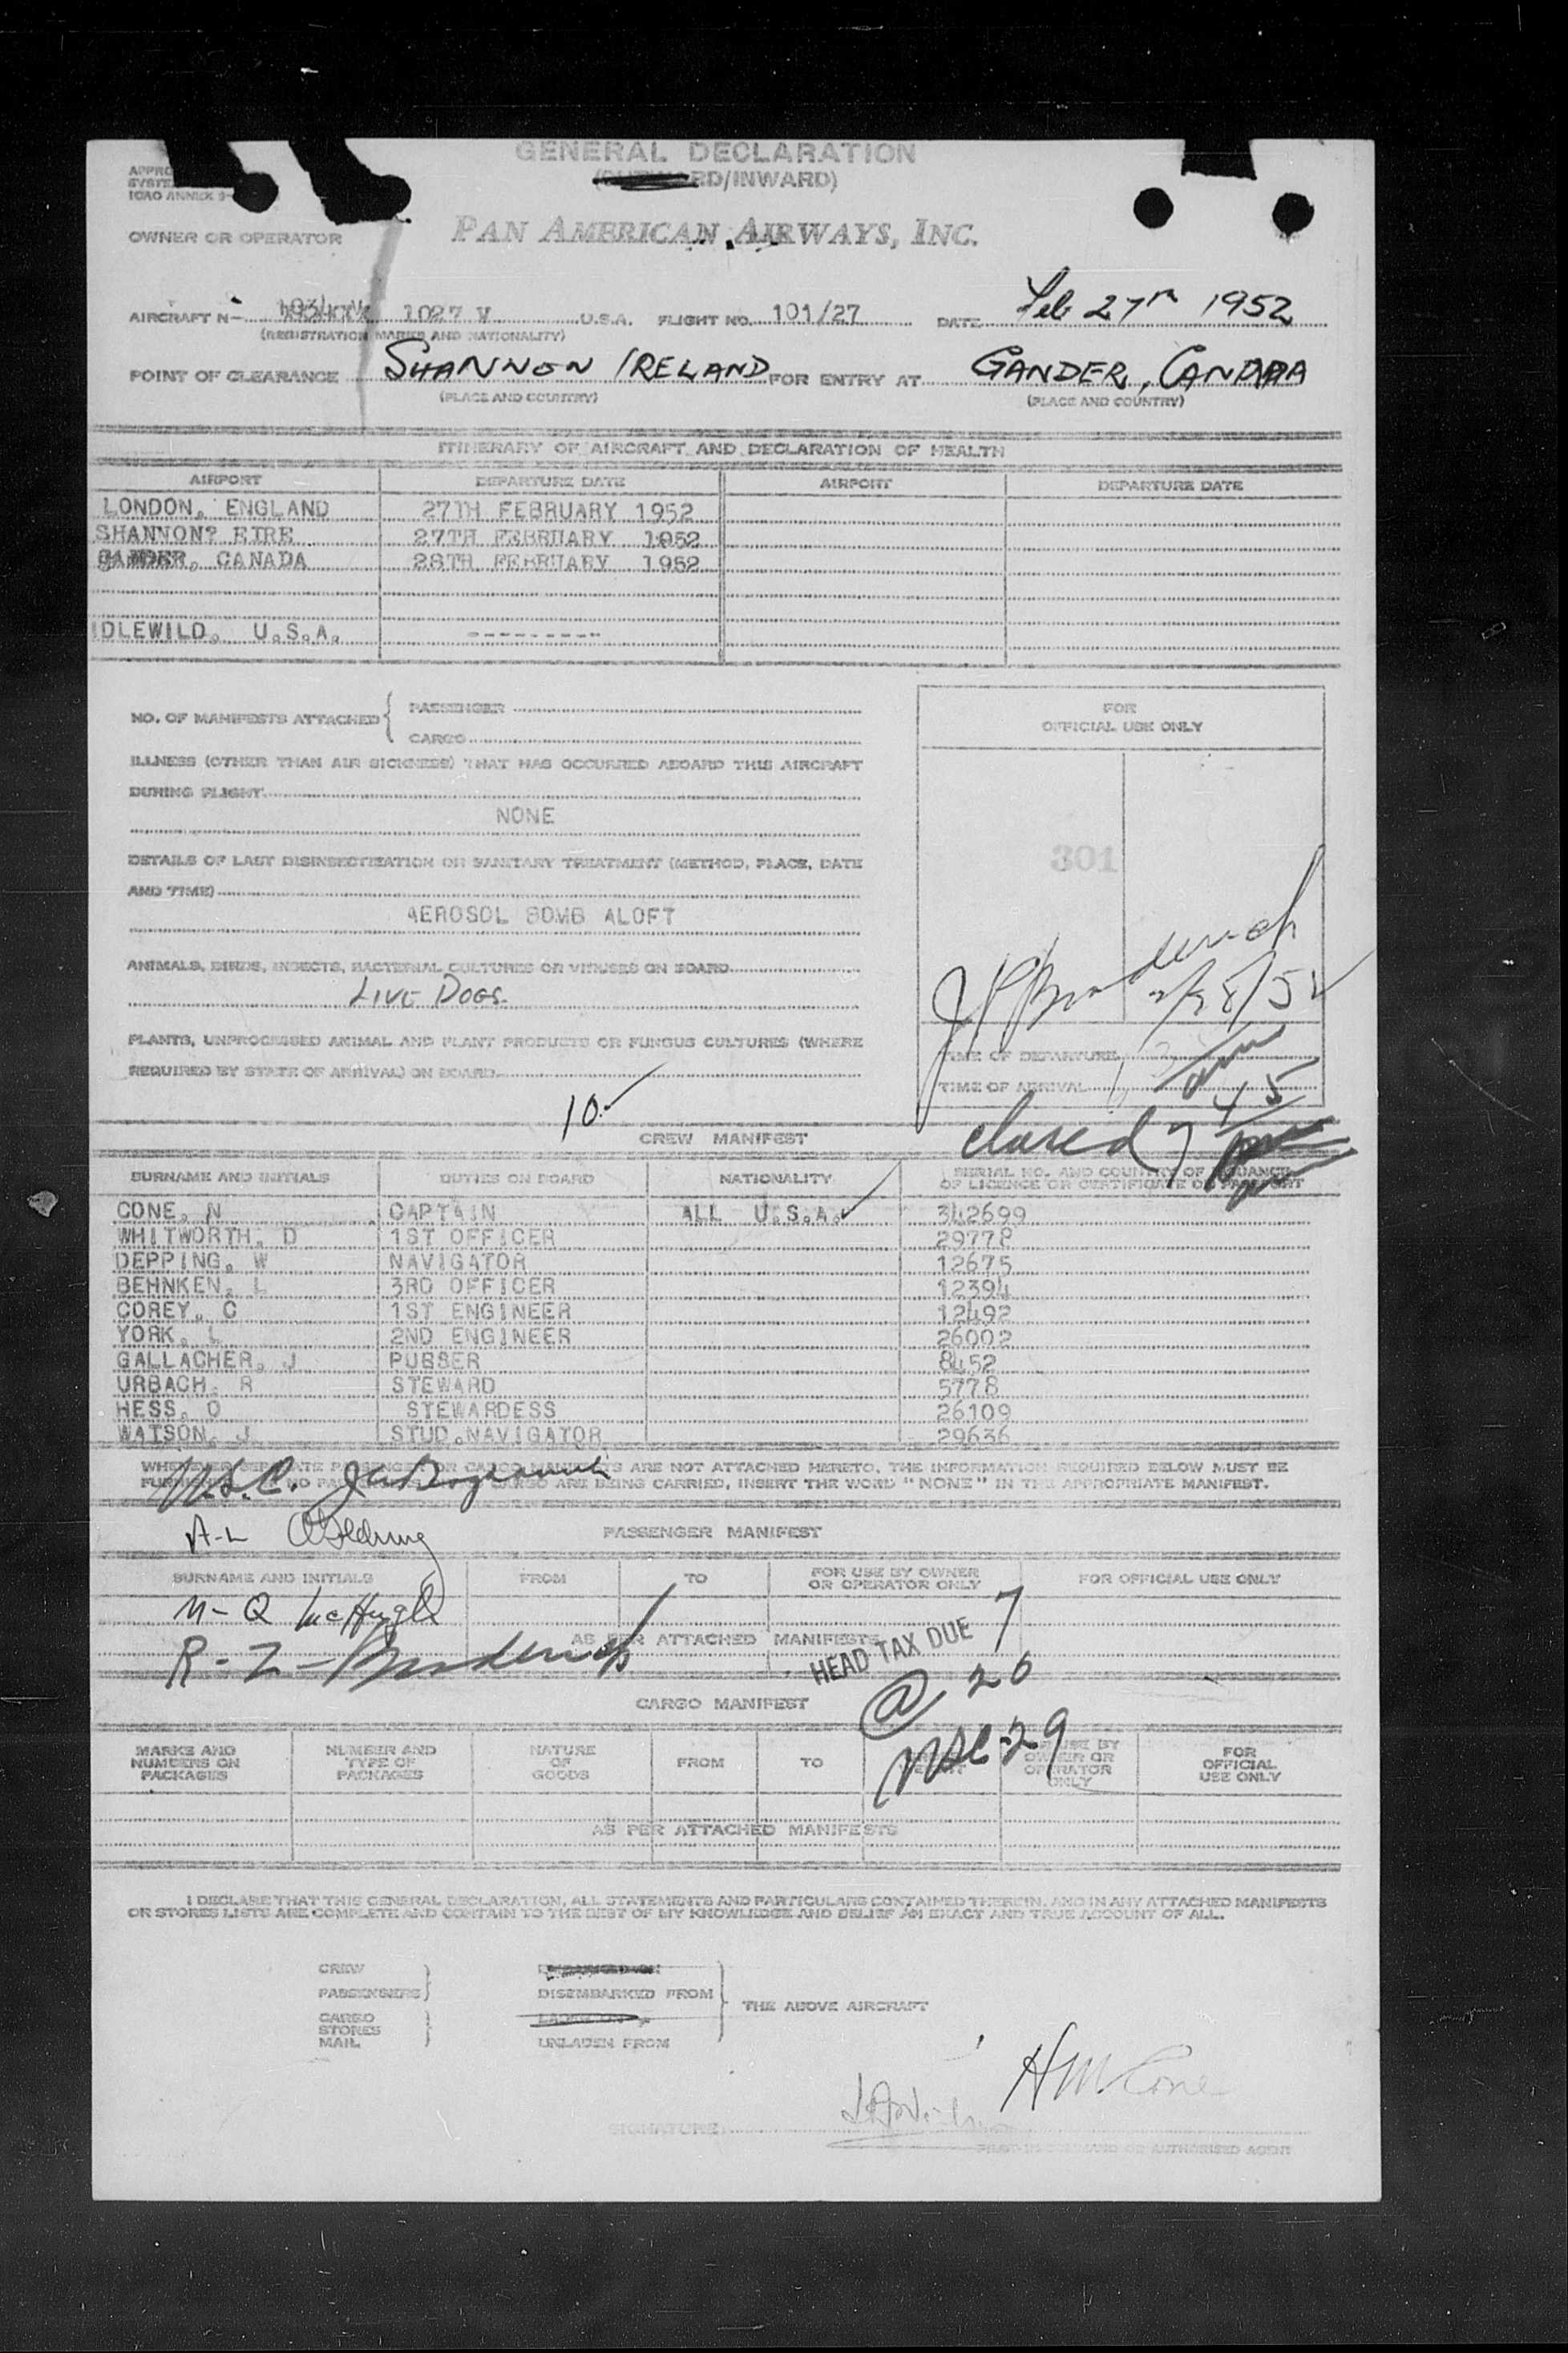 GENERAL DECLARATION
RD/INWARD)
ICAO ANNEX 9
OWNER OR OPERATOR
PAN AMERICAN AIRWAYS, INC.
AIRCRAFT N- 1027 V U.S.A. FLIGHT NO. 101/27 DATE Feb 27th 1952
(REGISTRATION MARKS AND NATIONALITY)
POINT OF CLEARANCE SHANNON IRELAND FOR ENTRY AT GANDER, CANADA
(PLACE AND COUNTRY) (PLACE AND COUNTRY)
ITINERARY OF AIRCRAFT AND DECLARATION OF HEALTH
AIRPORT DEPARTURE DATE AIRPORT DEPARTURE DATE
LONDON, ENGLAND 27TH FEBRUARY 1952
SHANNON? EIRE 27TH FEBRUARY 1952
GANDER, CANADA 28TH FEBRUARY 1952
IDLEWILD, U.S.A. --------
NO. OF MANIFESTS ATTACHED { PASSENGER
CARGO
ILLNESS (OTHER THAN AIR SICKNESS) THAT HAS OCCURRED ABOARD THIS AIRCRAFT
DURING FLIGHT
NONE
DETAILS OF LAST DISINSECTIZATION OR SANITARY TREATMENT (METHOD, PLACE, DATE
AND TIME)
AEROSOL BOMB ALOFT
ANIMALS, BIRDS, INSECTS, BACTERIAL CULTURES OR VIRUSES ON BOARD
LIVE DOGS.
PLANTS, UNPROCESSED ANIMAL AND PLANT PRODUCTS OR FUNGUS CULTURES (WHERE
REQUIRED BY STATE OF ARRIVAL) ON BOARD
FOR
OFFICIAL USE ONLY
301
2/28/52
TIME OF DEPARTURE
TIME OF ARRIVAL
10
CREW MANIFEST
SURNAME AND INITIALS DUTIES ON BOARD NATIONALITY SERIAL NO. AND COUNTRY OF ISSUANCE
OF LICENCE OR CERTIFICATE OR PASSPORT
CONE, N CAPTAIN ALL U.S.A. 342699
WHITWORTH, D 1ST OFFICER 29778
DEPPING, W NAVIGATOR 12675
BEHNKEN, L 3RD OFFICER 12394
COREY, C 1ST ENGINEER 12492
YORK, L 2ND ENGINEER 26002
GALLACHER, J PURSER 8452
URBACH, R STEWARD 5778
HESS, O STEWARDESS 26109
WATSON, J STUD.NAVIGATOR 29636
WHENEVER SEPARATE PASSENGER OR CARGO MANIFESTS ARE NOT ATTACHED HERETO, THE INFORMATION REQUIRED BELOW MUST BE
CARGO ARE BEING CARRIED, INSERT THE WORD "NONE" IN THE APPROPRIATE MANIFEST.
PASSENGER MANIFEST
SURNAME AND INITIALS FROM TO FOR USE BY OWNER
OR OPERATOR ONLY FOR OFFICIAL USE ONLY
AS PER ATTACHED MANIFESTS
HEAD TAX DUE 7
@ 20
CARGO MANIFEST
MARKS AND
NUMBERS ON
PACKAGES
NUMBER AND
TYPE OF
PACKAGES
NATURE
OF
GOODS
FROM TO
USE BY
OWNER OR
OPERATOR
ONLY
FOR
OFFICIAL
USE ONLY
AS PER ATTACHED MANIFESTS
I DECLARE THAT THIS GENERAL DECLARATION, ALL STATEMENTS AND PARTICULARS CONTAINED THEREIN, AND IN ANY ATTACHED MANIFESTS
OR STORES LISTS ARE COMPLETE AND CONTAIN TO THE BEST OF MY KNOWLEDGE AND BELIEF AN EXACT AND TRUE ACCOUNT OF ALL.
CREW
PASSENGERS } DISEMBARKED FROM
THE ABOVE AIRCRAFT
CARGO
STORES
MAIL } UNLADEN FROM
SIGNATURE
PILOT-IN-COMMAND OR AUTHORISED AGENT